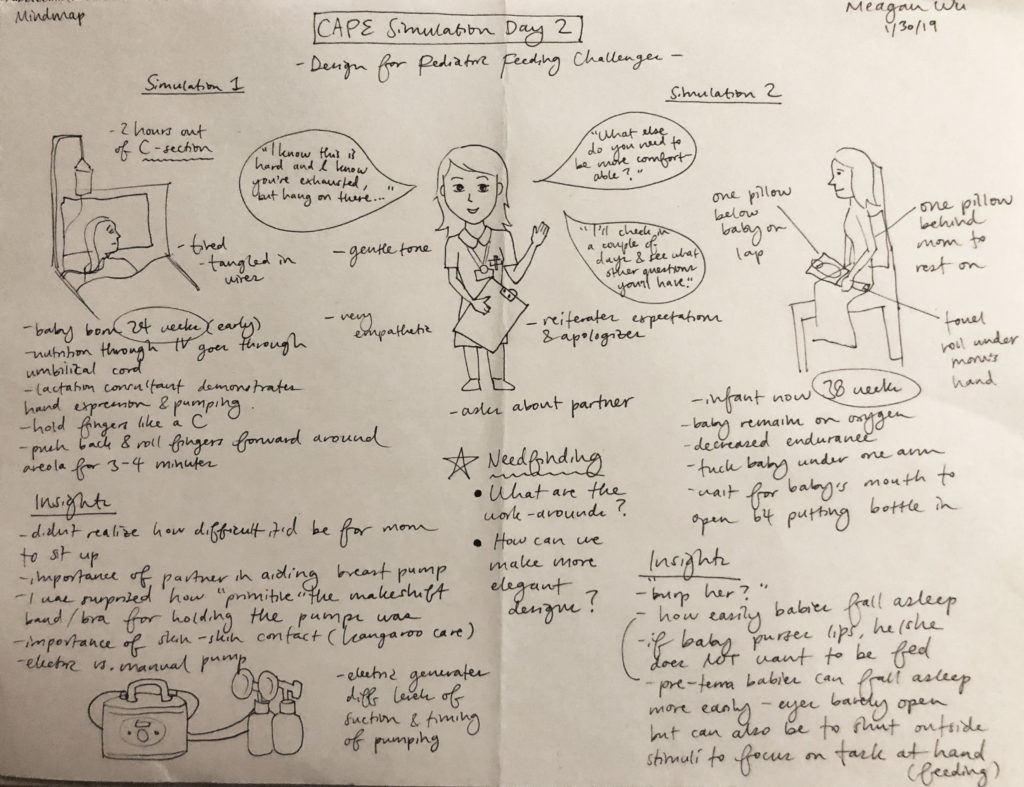 Mindmap
Meagan Wu
1/30/19
CAPE Simulation Day 2
- Design for Pediatric Feeding Challenges -
Simulation 1
- 2 hours out
of C-section
- tired
- tangled in
wires
- baby born 24 weeks (early)
- nutrition through IV goes through
umbilical cord
- lactation consultant demonstrates
hand expression & pumping.
- hold fingers like a C
- push back & roll fingers forward around
areola for 3-4 minutes
Insights
- didn't realize how difficult it'd be for mom
to sit up
- importance of partner in aiding breast pump
- I was surprised how "primitive" the makeshift
band/bra for holding the pumps was
- importance of skin-skin contact (kangaroo care)
- electric vs. manual pump
- electric generates
diff levels of
suction & timing
of pumping
"I know this is
hard and I know
you're exhausted,
but hang on there..."
"What else
do you need to
be more comfort
able?"
"I'll check in
a couple of
days & see what
other questions
you'll have."
- gentle tone
- very
empathetic
- reiterates expectations
& apologizes
- asks about partner
Needfinding
• What are the
work-arounds?
• How can we
make more
elegant
designs?
Simulation 2
one pillow
below
baby on
lap
one pillow
behind
mom to
rest on
towel
roll under
mom's
hand
- infant now 38 weeks
- baby remains on oxygen
- decreased endurance
- tuck baby under one arm
- wait for baby's mouth to
open b4 putting bottle in
Insights
- "burp her?"
- how easily babies fall asleep
- if baby purses lips, he/she
does NOT want to be fed
- pre-term babies can fall asleep
more easily - eyes barely open
but can also be to shut outside
stimuli to focus on task at hand
(feeding)